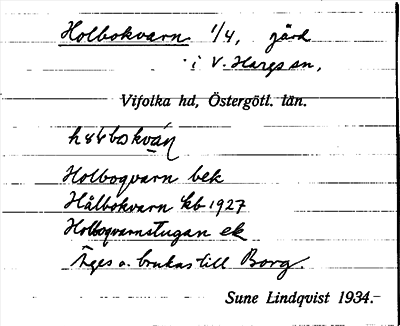 Holbokvarn 1/4, gård
i V. Hargs sn,
Vifolka hd, Östergötl. län.
Holboqvarn bek
Hålbokvarn kb 1927
Holboqvarnstugan ek
Äges o. brukas till Borg.
Sune Lindqvist 1934.